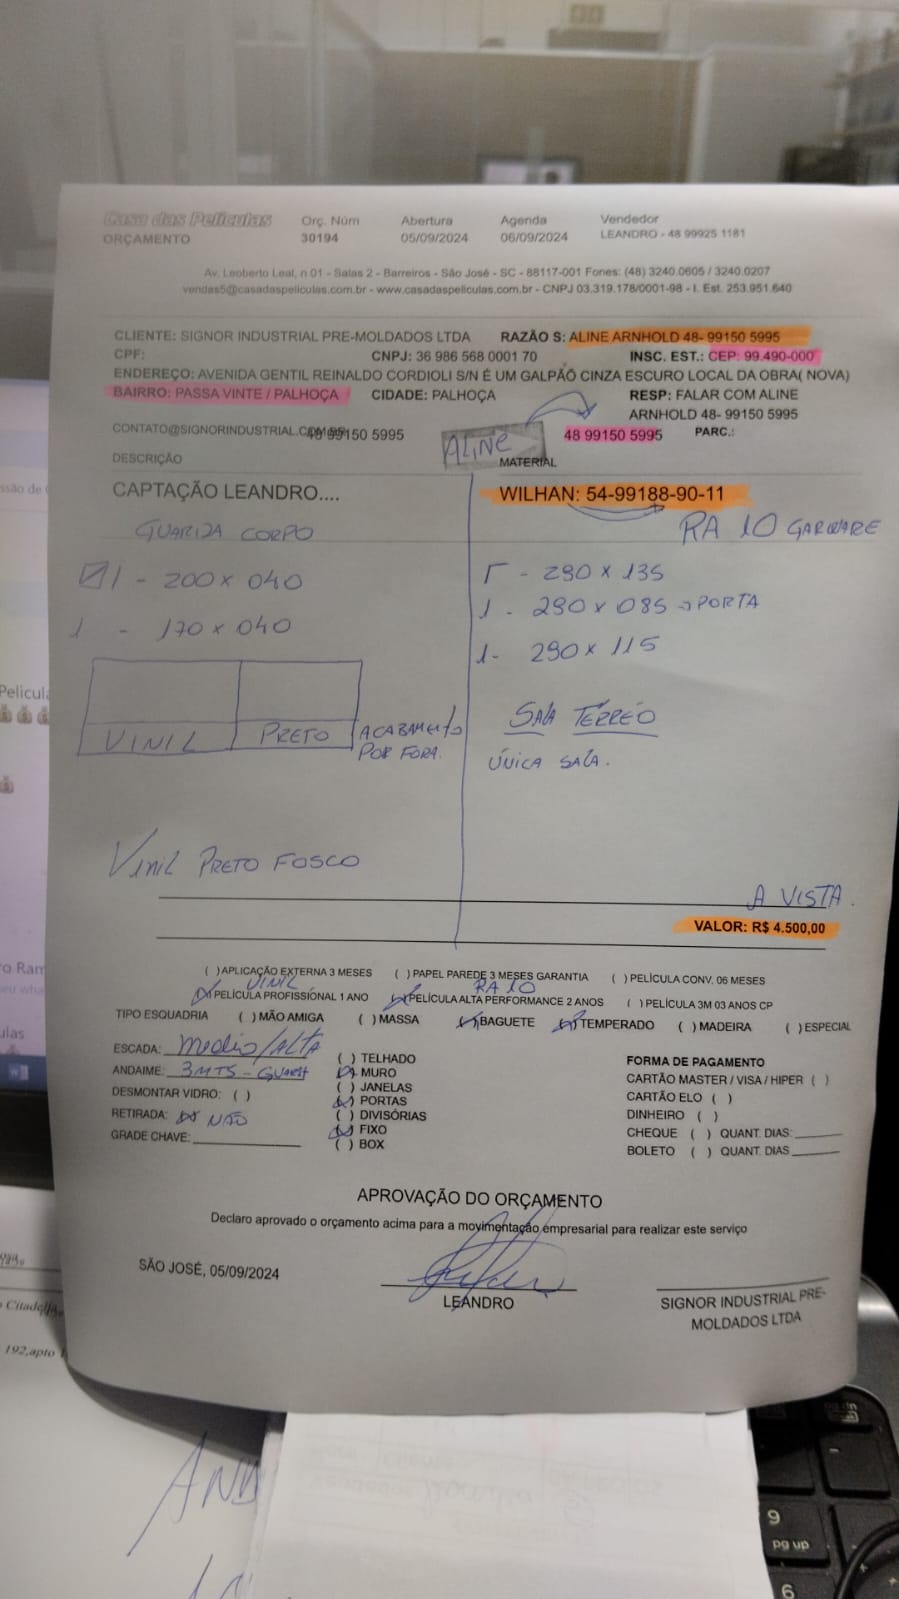 Casa das Películas
ORÇAMENTO
Orç. Núm
30194
Abertura
05/09/2024
Agenda
06/09/2024
Vendedor
LEANDRO - 48 99925 1181
Av. Leoberto Leal, n 01 - Salas 2 - Barreiros - São José - SC - 88117-001 Fones: (48) 3240.0605 / 3240.0207
vendas5@casadaspeliculas.com.br - www.casadaspeliculas.com.br - CNPJ 03.319.178/0001-98 - I. Est. 253.951.640
CLIENTE: SIGNOR INDUSTRIAL PRE-MOLDADOS LTDA RAZÃO S: ALINE ARNHOLD 48- 99150 5995
CPF: CNPJ: 36 986 568 0001 70 INSC. EST.: CEP: 99.490-000
ENDEREÇO: AVENIDA GENTIL REINALDO CORDIOLI S/N É UM GALPÃO CINZA ESCURO LOCAL DA OBRA( NOVA)
BAIRRO: PASSA VINTE / PALHOÇA CIDADE: PALHOÇA RESP: FALAR COM ALINE
ARNHOLD 48- 99150 5995
CONTATO@SIGNORINDUSTRIAL.COM.BR 48 99150 5995 ALINE 48 99150 5995 PARC.:
DESCRIÇÃO MATERIAL
CAPTAÇÃO LEANDRO.... WILHAN: 54-99188-90-11
GUARDA CORPO
1 - 200 x 040
1 - 170 x 040
VINIL PRETO ACABAMENTO
POR FORA.
VINIL PRETO FOSCO
RA 10 GARWARE
1 - 290 x 135
1 - 290 x 085 → PORTA
1 - 290 x 115
SALA TÉRREO
ÚNICA SALA.
A VISTA.
VALOR: R$ 4.500,00
( ) APLICAÇÃO EXTERNA 3 MESES ( ) PAPEL PAREDE 3 MESES GARANTIA ( ) PELÍCULA CONV. 06 MESES
VINIL RA 10
(X) PELÍCULA PROFISSIONAL 1 ANO (X) PELÍCULA ALTA PERFORMANCE 2 ANOS ( ) PELÍCULA 3M 03 ANOS CP
TIPO ESQUADRIA ( ) MÃO AMIGA ( ) MASSA (X) BAGUETE (X) TEMPERADO ( ) MADEIRA ( ) ESPECIAL
ESCADA: MEDIO/ALTA
ANDAIME: 3MTS -
DESMONTAR VIDRO: ( )
RETIRADA: (X) NÃO
GRADE CHAVE:
( ) TELHADO
(X) MURO
( ) JANELAS
(X) PORTAS
( ) DIVISÓRIAS
(X) FIXO
( ) BOX
FORMA DE PAGAMENTO
CARTÃO MASTER / VISA / HIPER ( )
CARTÃO ELO ( )
DINHEIRO ( )
CHEQUE ( ) QUANT. DIAS:
BOLETO ( ) QUANT. DIAS
APROVAÇÃO DO ORÇAMENTO
Declaro aprovado o orçamento acima para a movimentação empresarial para realizar este serviço
SÃO JOSÉ, 05/09/2024
LEANDRO
SIGNOR INDUSTRIAL PRE-
MOLDADOS LTDA
192,apto
9
pg up
6